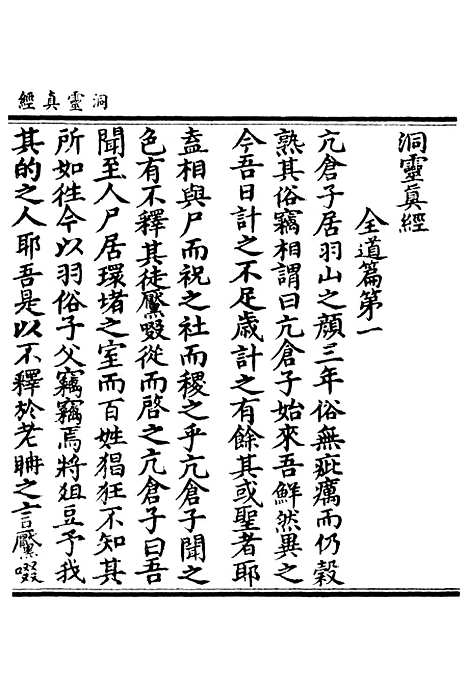 洞靈真經
洞靈真經
全道篇第一
亢倉子居羽山之顏三年俗無疵癘而仍穀
熟其俗竊相謂曰亢倉子始來吾鮮然異之
今吾日計之不足歲計之有餘其或聖者耶
盍相與尸而祝之社而稷之乎亢倉子聞之
色有不釋其徒黡啜從而啓之亢倉子曰吾
聞至人尸居環堵之室而百姓猖狂不知其
所如徃今以羽俗子父竊竊焉將俎豆予我
其的之人耶吾是以不釋於老聃之言黡啜